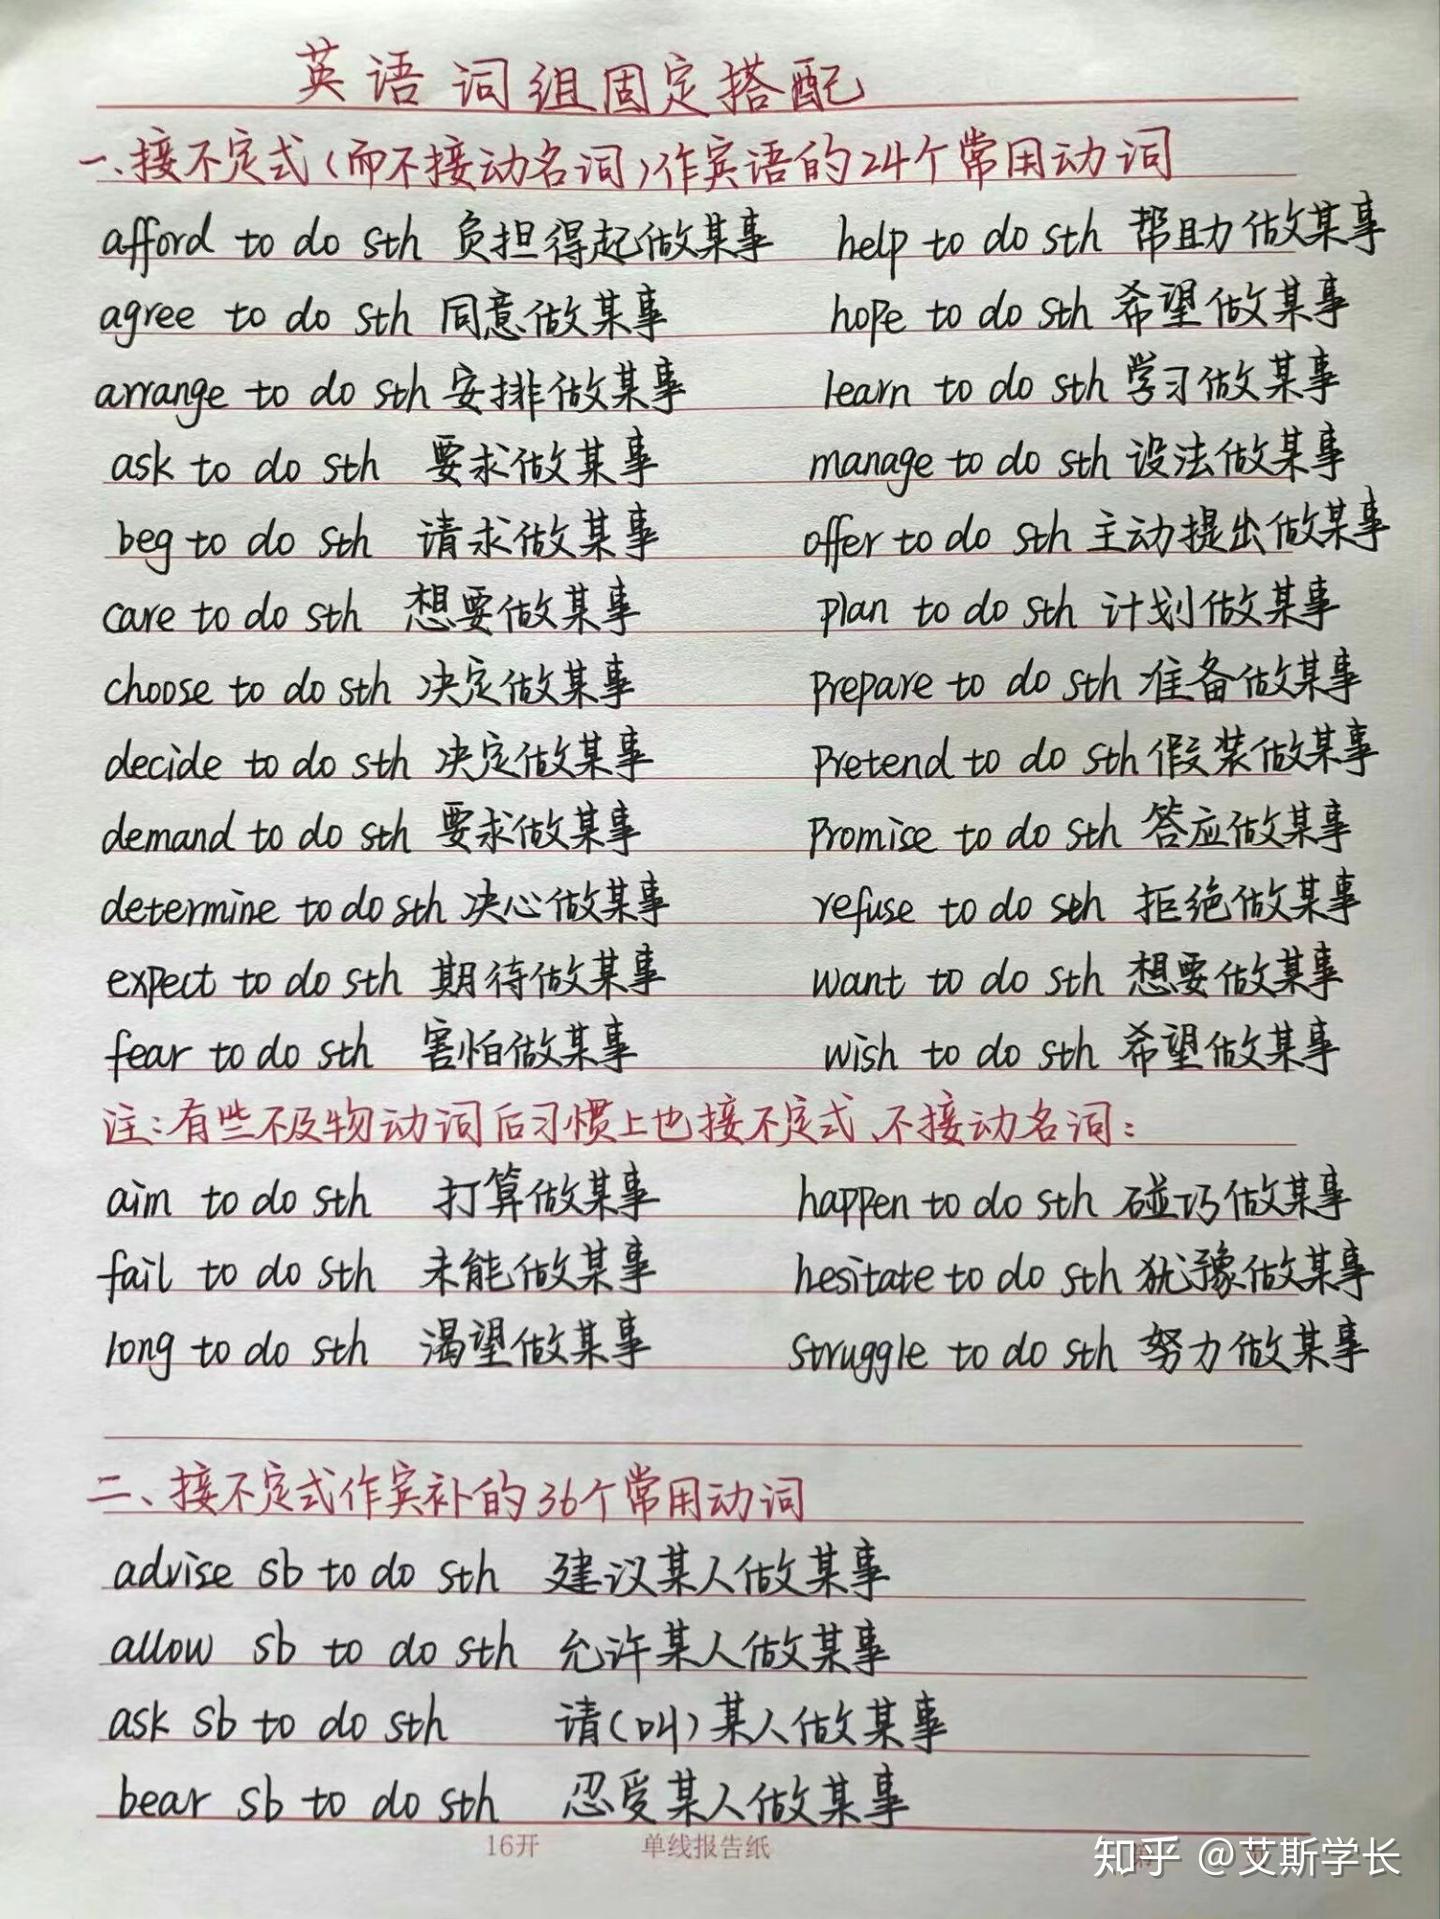 英语词组固定搭配
一、接不定式(而不接动名词)作宾语的24个常用动词
afford to do sth 负担得起做某事 help to do sth 帮助做某事
agree to do sth 同意做某事 hope to do sth 希望做某事
arrange to do sth 安排做某事 learn to do sth 学习做某事
ask to do sth 要求做某事 manage to do sth 设法做某事
beg to do sth 请求做某事 offer to do sth 主动提出做某事
care to do sth 想要做某事 plan to do sth 计划做某事
choose to do sth 决定做某事 prepare to do sth 准备做某事
decide to do sth 决定做某事 pretend to do sth 假装做某事
demand to do sth 要求做某事 promise to do sth 答应做某事
determine to do sth 决心做某事 refuse to do sth 拒绝做某事
expect to do sth 期待做某事 want to do sth 想要做某事
fear to do sth 害怕做某事 wish to do sth 希望做某事
注:有些不及物动词后习惯上也接不定式、不接动名词:
aim to do sth 打算做某事 happen to do sth 碰巧做某事
fail to do sth 未能做某事 hesitate to do sth 犹豫做某事
long to do sth 渴望做某事 struggle to do sth 努力做某事
二、接不定式作宾补的36个常用动词
advise sb to do sth 建议某人做某事
allow sb to do sth 允许某人做某事
ask sb to do sth 请(叫)某人做某事
bear sb to do sth 忍受某人做某事
16开 单线报告纸
知乎 @艾斯学长